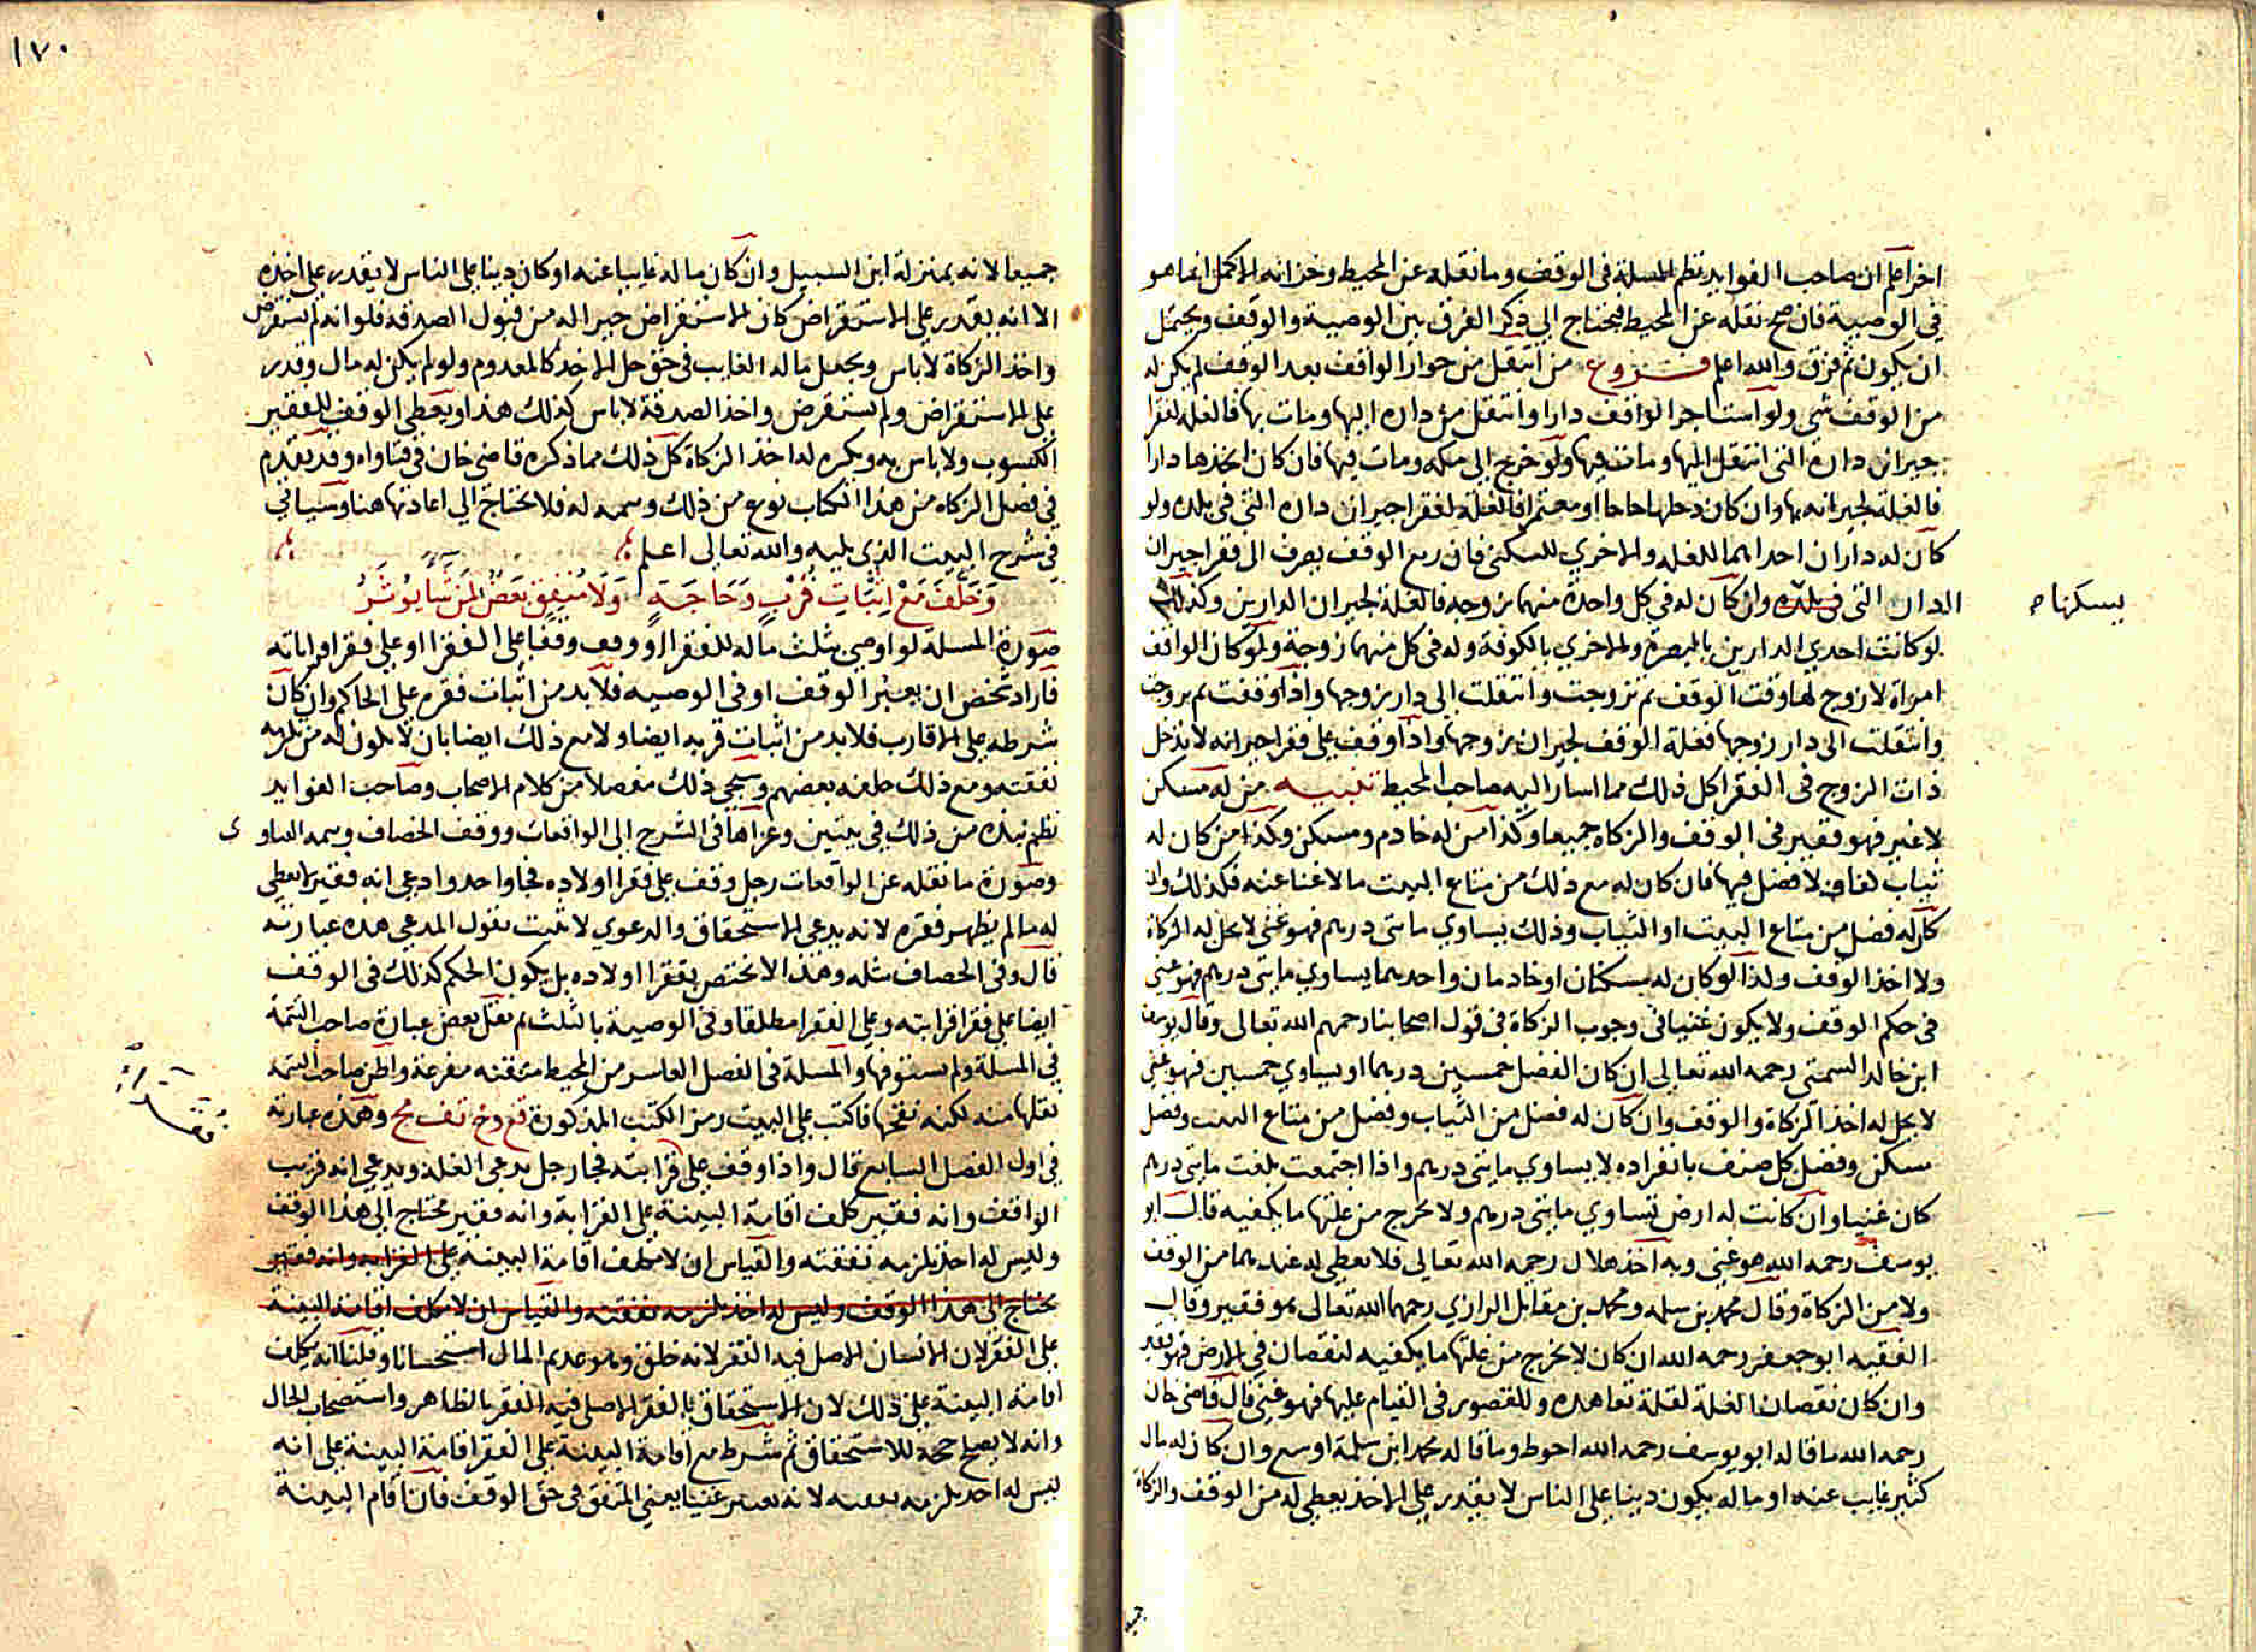 اخر اعلم ان صاحب الفوايد نظم المسلة في الوقف وما نقله عن المحيط وخزانه الاكمل انما هو
في الوصية فان صح نقله عن المحيط فيحتاج الي ذكر الفرق بين الوصية والوقف ويحتمل
ان يكون ثم فرق والله اعلم فــروع من انتقل من جوار الواقف بعد الوقف لم يكن له
من الوقف شي ولو استاجر الواقف دارا وانتقل من داره اليها ومات بها فالغله لفقرا
جيران داره التي انتقل اليها ومات فيها ولو خرج الي مكه ومات فيها فان كان اتخذها دارا
فالغلة لجيرانه بها وان كان دخلها حاجا او معتمرا فالغلة لفقرا جيران داره التي في بلده ولو
كان له داران احداهما للغله والاخري للسكنى فان ريع الوقف يصرف الى فقرا جيران
الدار التي في بلده وان كان له في كل واحدة منهما زوجه فالغلة لجيران الدارين وكذلك
يسكنها ص
لو كانت احدي الدارين بالبصرة والاخري بالكوفة وله في كل منهما زوجة ولو كان الواقف
امراة لا زوج لها وقت الوقف ثم تزوجت وانتقلت الى دار زوجها واذا وقفت ثم تزوجت
وانتقلت الى دار زوجها فغلة الوقف لجيران زوجها واذا وقف علي فقرا جيرانه لا تدخل
ذات الزوج في الفقرا كل ذلك مما اشار اليه صاحب المحيط تنبيــه من له مسكن
لا غير فهو فقير في الوقف والزكاه جميعا وكذا من له خادم ومسكن وكذا من كان له
ثياب كفاف لا فضل فيها فان كان له مع ذلك من متاع البيت ما لا غنا عنه فكذلك وان
كان له فضل من متاع البيت او الثياب وذلك يساوي مائتى درهم فهو غني لا يحل له الزكاة
ولا اخذ الوقف ولذا لو كان له مسكنان او خادمان واحدهما يساوي مايتى درهم فهو غني
في حكم الوقف ولا يكون غنيا في وجوب الزكاة في قول اصحابنا رحمهم الله تعالى وقال يوسف
ابن خالد السمتي رحمه الله تعالى ان كان الفضل خمسين درهما او يساوي خمسين فهو غني
لا يحل له اخذ الزكاة والوقف وان كان له فضل من الثياب وفضل من متاع البيت وفضل
مسكن وفضل كل صنف بانفراده لا يساوي مايتى درهم واذا اجتمعت بلغت مايتى درهم
كان غنيا وان كانت له ارض تساوي مايتى درهم ولا تخرج من غلتها ما يكفيه قال ابو
يوسف رحمه الله هو غني وبه اخذ هلال رحمه الله تعالى فلا يعطي له عندهما من الوقف
ولا من الزكاة وقال محمد بن سلمه ومحمد بن مقاتل الرازي رحمهما الله تعالى هو فقير وقال
الفقيه ابو جعفر رحمه الله ان كان لا تخرج من غلتها ما يكفيه لنقصان في الارض فهو فقير
وان كان نقصان الغلة لقلة تعاهده وللقصور في القيام عليها فهو غني قال قاضى خان
رحمه الله ما قاله ابو يوسف رحمه الله احوط وما قاله محمد ابن سلمة اوسع وان كان له مال
كثير غايب عنه او ماله يكون دينا علي الناس لا يقدر علي الاخذ يعطي له من الوقف والزكاة
جميعا
١٧٠
جميعا لانه بمنزلة ابن السبيل وان كان ماله غايبا عنه او كان دينا علي الناس لا يقدر على اخذه
الا انه يقدر علي الاستقراض كان الاستقراض خيرا له من قبول الصدقه فلو انه لم يستقرض
واخذ الزكاة لا باس ويجعل ماله الغايب في حق حل الاخذ كالمعدوم ولو لم يكن له مال وقدر
علي الاستقراض ولم يستقرض واخذ الصدقة لا باس كذلك هذا ويعطي الوقف للفقير
الكسوب ولا باس به ويكره له اخذ الزكاة كل ذلك مما ذكره قاضي خان في فتاواه وقد تقدم
في فصل الزكاه من هذا الكتاب نوع من ذلك وسمه له فلا نحتاج الي اعادتها هنا وسياتي
في شرح البيت الذي يليه والله تعالى اعلم
وَحَلَّفَ مَعْ اِثْبَاتِ قُرْبٍ وَحَاجَةٍ وَلَا مُنْفِقٍ بَعْضٌ لِمَنْ شَا يُوثَرُ
صورة المسلة لو اوصى بثلث ماله للفقرا او وقف وقفا على الفقرا او علي فقرا قراباته
فاراد شخص ان يعتبر الوقف او في الوصيه فلا بد من اثبات فقره على الحاكم وان كان
شرطه على الاقارب فلا بد من اثبات قربه ايضا ولا مع ذلك ايضا بان لا يكون له من تلزمه
نفقته ومع ذلك حلفه بعضهم وسيجي ذلك مفصلا من كلام الاصحاب وصاحب الفوايد
نظم نبذه من ذلك في بيتين وعزاها في الشرح الى الواقعات ووقف الخصاف وسمه الفتاوى
وصورة ما نقله عن الواقعات رجل وقف علي فقرا اولاده فجا واحد وادعي انه فقير لا يعطي
له ما لم يظهر فقره لانه يدعي الاستحقاق والدعوي لا تثبت بقول المدعي هذه عبارته
قال وفي الخصاف مثله وهذا لا يختص بفقرا اولاده بل يكون الحكم كذلك في الوقف
ايضا على فقرا قرابته وعلي الفقرا مطلقا وفي الوصية بالثلث ثم نقل بعض عبارة صاحب التتمة
في المسلة ولم يستوفها والمسلة في الفصل العاشر من المحيط متقنه مفرعة واظن صاحب التتمة
نقلها منه لكنه نقحها فاكتب علي البيت رمز الكتب المذكورة قع وخ تف مح وهذه عبارته
في اول الفصل السابع قال واذا وقف علي قرابته فجا رجل يدعي الغلة ويدعي انه قريب
فقراء
الواقف وانه فقير كلف اقامة البينة علي القرابة وانه فقير محتاج الي هذا الوقف
وليس له احد يلزمه نفقته والقياس ان لا يكلف اقامة البينه علي القرابه وانه فقير
محتاج الي هذا الوقف وليس له احد يلزمه نفقته والقياس ان لا يكلف اقامة البينة
علي الفقر لان الانسان الاصل فيه الفقر لانه خلق وهو عديم المال استحسانا وقلنا انه يكلف
اقامة البينة علي ذلك لان الاستحقاق بالفقر الاصلي فيه الفقر بالظاهر واستصحاب الحال
وانه لا يصلح حجة للاستحقاق ثم شرط مع اقامة البينة علي الفقر اقامة البينة على انه
ليس له احد يلزمه نفقته لانه يعتبر غنيا بغني المنفق في حق الوقف فان اقام البينة